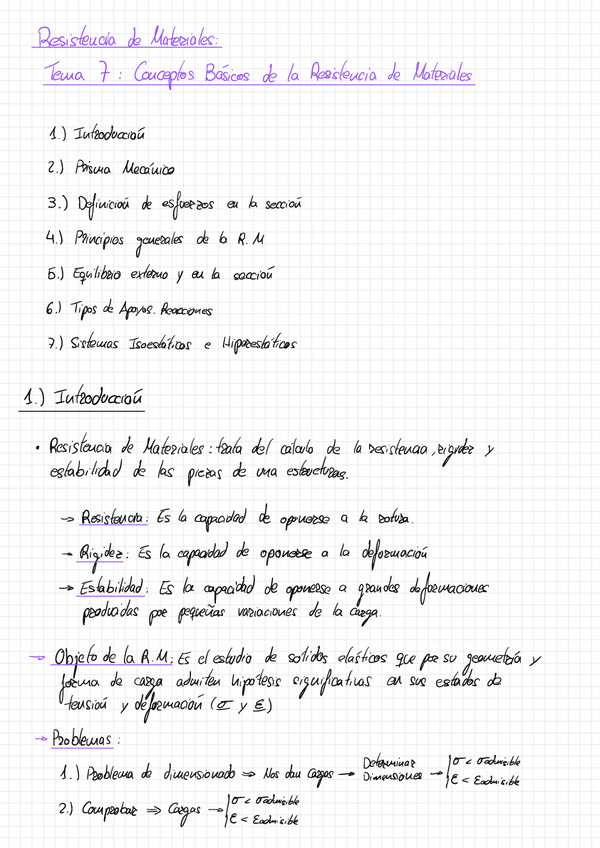 Resistencia de Materiales:
Tema 7: Conceptos Básicos de la Resistencia de Materiales
1.) Introducción
2.) Prisma Mecánico
3.) Definición de esfuerzos en la sección
4.) Principios generales de la R.M
5.) Equilibrio externo y en la sección
6.) Tipos de Apoyos. Reacciones
7.) Sistemas Isoestáticos e Hiperestáticos
1.) Introducción
• Resistencia de Materiales: trata del cálculo de la resistencia, rigidez y
estabilidad de las piezas de una estructuras.
→ Resistencia: Es la capacidad de oponerse a la rotura.
→ Rigidez: Es la capacidad de oponerse a la deformación
→ Estabilidad: Es la capacidad de oponerse a grandes deformaciones
producidas por pequeñas variaciones de la carga.
→ Objeto de la R.M: Es el estudio de solidos elásticos que por su geometría y
forma de carga admiten hipotesis significativas en sus estados de
tensión y deformación (σ y ε)
→ Problemas:
1.) Problema de dimensionado ⇒ Nos dan cargas → Determinar Dimensiones → σ < σadmisible
ε < εadmisible
2.) Comprobar ⇒ Cargas → σ < σadmisible
ε < εadmisible